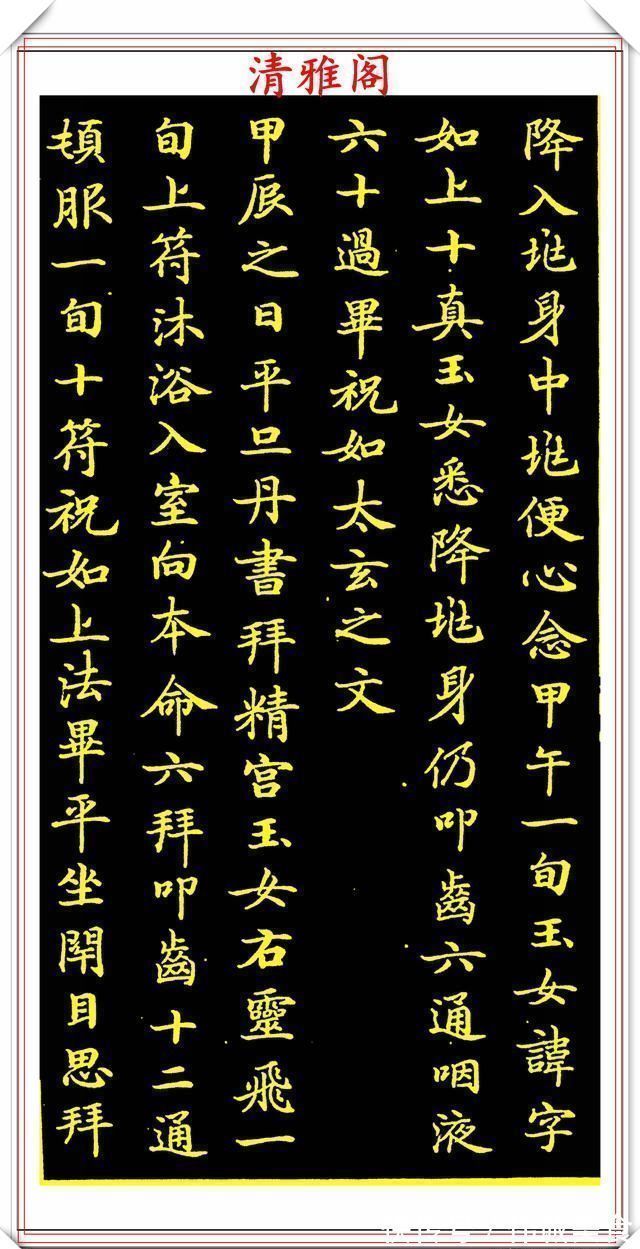 清雅阁
降入兆身中兆便心念甲午一旬玉女諱字
如上十真玉女悉降兆身仍叩齒六通咽液
六十過畢祝如太玄之文
甲辰之日平旦丹書拜精宮玉女右靈飛一
旬上符沐浴入室向本命六拜叩齒十二通
頓服一旬十符祝如上法畢平坐閉目思拜